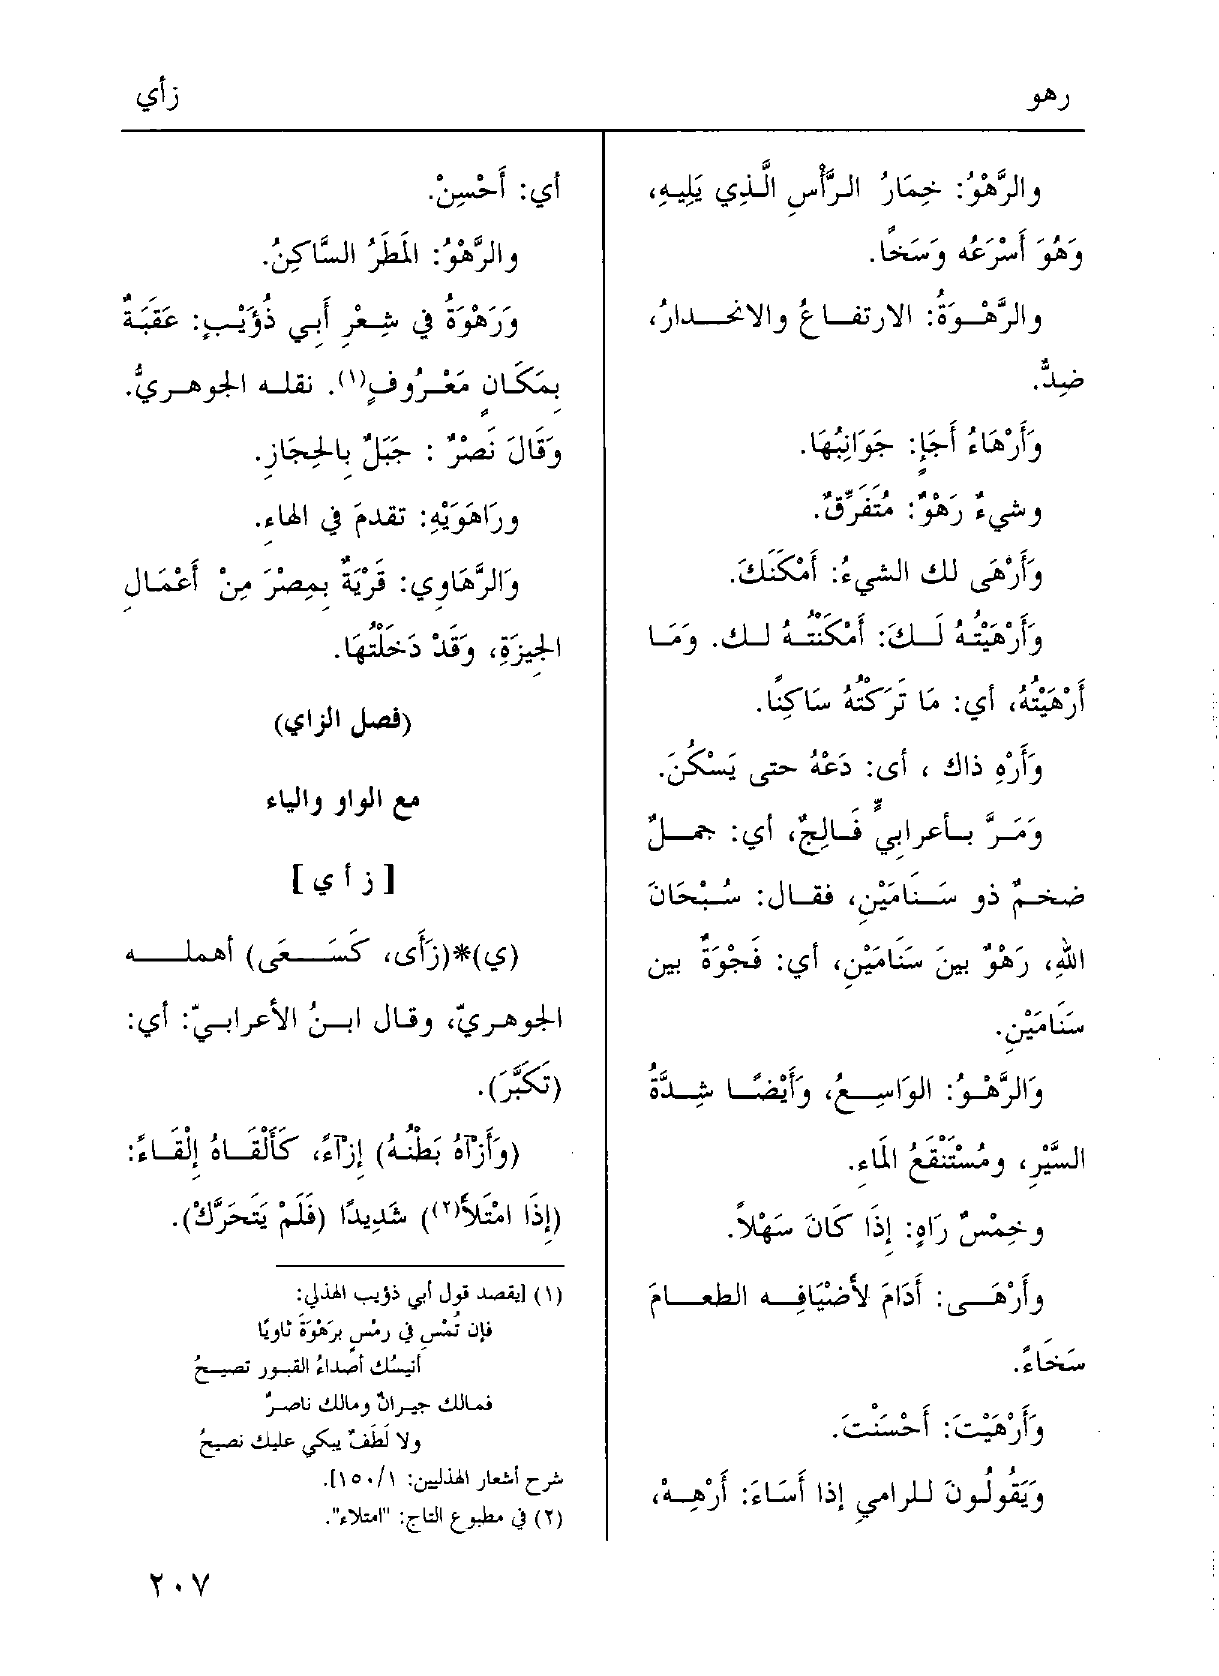 رهو
زأي
والرَّهْوُ: خِمَارُ الرَّأْسِ الَّذِي يَلِيهِ،
وَهُوَ أَسْرَعُه وَسَخًا.
والرَّهْوَةُ: الارتفاعُ والانحدارُ،
ضِدٌّ.
وَأَرْهَاءُ أَجَإٍ: جَوَانِبُهَا.
وشيءٌ رَهْوٌ: مُتَفَرِّقٌ.
وَأَرْهَى لك الشيءُ: أَمْكَنَكَ.
وَأَرْهَيْتُهُ لَكَ: أَمْكَنْتُهُ لك. وَمَا
أَرْهَيْتُهُ، أي: مَا تَرَكْتُهُ سَاكِنًا.
وَأَرْهِ ذاك ، أى: دَعْهُ حتى يَسْكُنَ.
وَمَرَّ بأعرابيٍّ فَالِجٌ، أي: جملٌ
ضخمٌ ذو سَنَامَيْنِ، فقال: سُبْحَانَ
اللهِ، رَهْوٌ بينَ سَنَامَيْنِ، أي: فَجْوَةٌ بين
سَنَامَيْنِ.
وَالرَّهْوُ: الوَاسِعُ، وَأَيْضًا شِدَّةُ
السَّيْرِ، ومُسْتَنْقَعُ المَاءِ.
وخِمْسٌ رَاهٍ: إِذَا كَانَ سَهْلاً.
وأَرْهَى: أَدَامَ لأَضْيَافِه الطعامَ
سَخَاءً.
وَأَرْهَيْتَ: أَحْسَنْتَ.
وَيَقُولُونَ للرامي إذا أَسَاءَ: أَرْهِهْ،
أي: أَحْسِنْ.
والرَّهْوُ: المَطَرُ السَّاكِنُ.
وَرَهْوَةُ في شِعْرِ أَبي ذُؤَيْبٍ: عَقَبَةٌ
بِمَكَانٍ مَعْرُوفٍ(١). نقله الجوهريُّ.
وَقَالَ نَصْرٌ : جَبَلٌ بِالحِجَازِ.
ورَاهَوَيْهِ: تقدمَ في الهاءِ.
وَالرَّهَاوِي: قَرْيَةٌ بِمِصْرَ مِنْ أَعْمَالِ
الجِيزَةِ، وَقَدْ دَخَلْتُهَا.
(فصل الزاي)
مع الواو والياء
[ ز أ ي ]
(ي)*(زَأَى، كَسَعَى) أهمله
الجوهريّ، وقال ابنُ الأعرابيّ: أي:
(تَكَبَّرَ).
(وَأَزْآهُ بَطْنُهُ) إِزآءً، كَأَلْقَاهُ إِلْقَاءً:
(إِذَا امْتَلأَ(٢)) شَدِيدًا (فَلَمْ يَتَحَرَّكْ).
(١) [يقصد قول أبي ذؤيب الهذلي:
فإن تُمْسِ في رمْسٍ برَهْوَةَ ثاويًا
أنيسُك أصْداءُ القبور تصيحُ
فمالك جيرانٌ ومالك ناصرٌ
ولا لَطَفٌ يبكي عليك نصيحُ
شرح أشعار الهذليين: ١/ ١٥٠].
(٢) في مطبوع التاج: "امتلاء".
٢٠٧